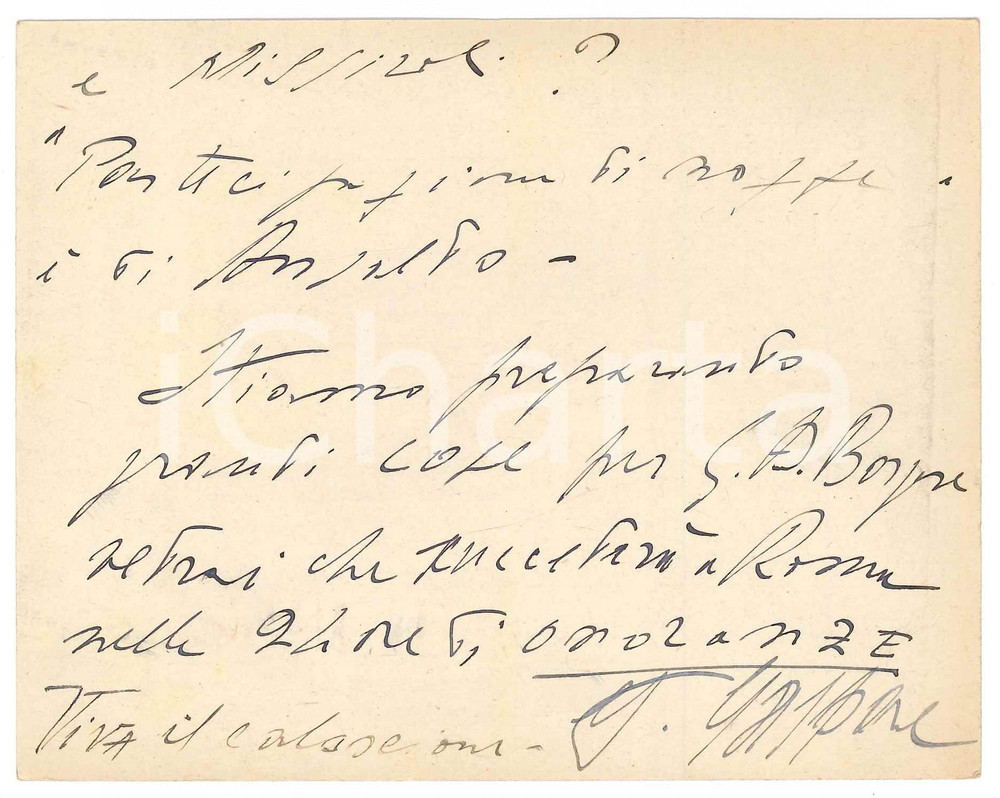 e Missiroli ?
"Partecipazione di nozze"
è di Ansaldo -
Stiamo preparando
grandi cose per G. B. Borgese
vedrai che succederà a Roma
nelle 24 ore di onoranze
Viva il
iCharta